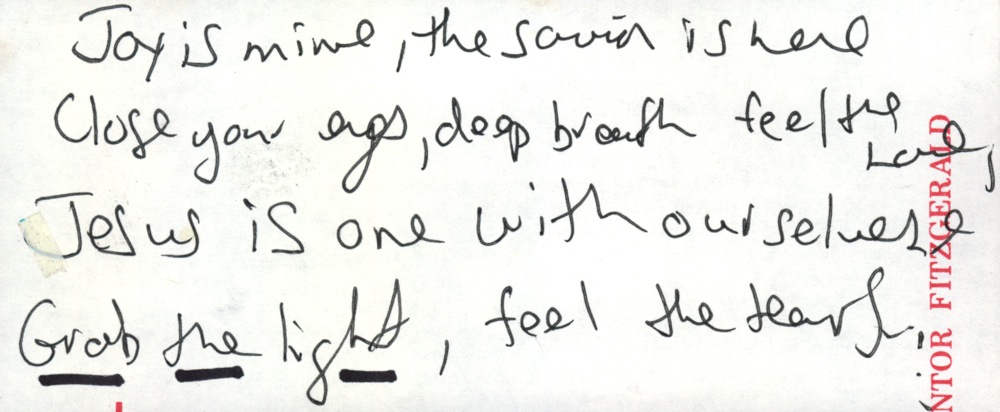 Joy is mine, the savior is here
Close your eyes, deep breath feel the
Love,
Jesus is one with ourselves
Grab the light, feel the tears.
NTOR FITZGERALD